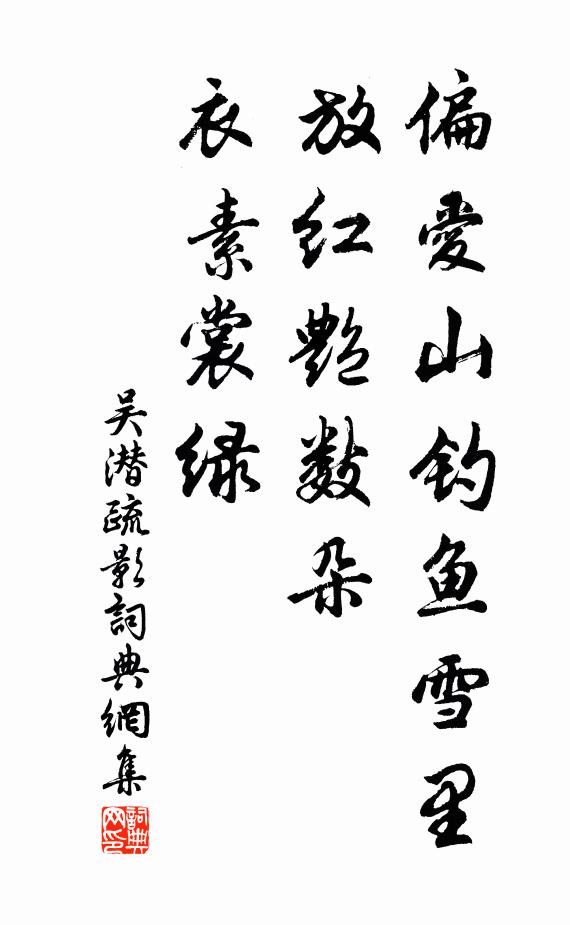 偏愛山钓鱼雪里
放红艷数朵
衣素裳绿
吴潜疏影詞典網集
詞典网印